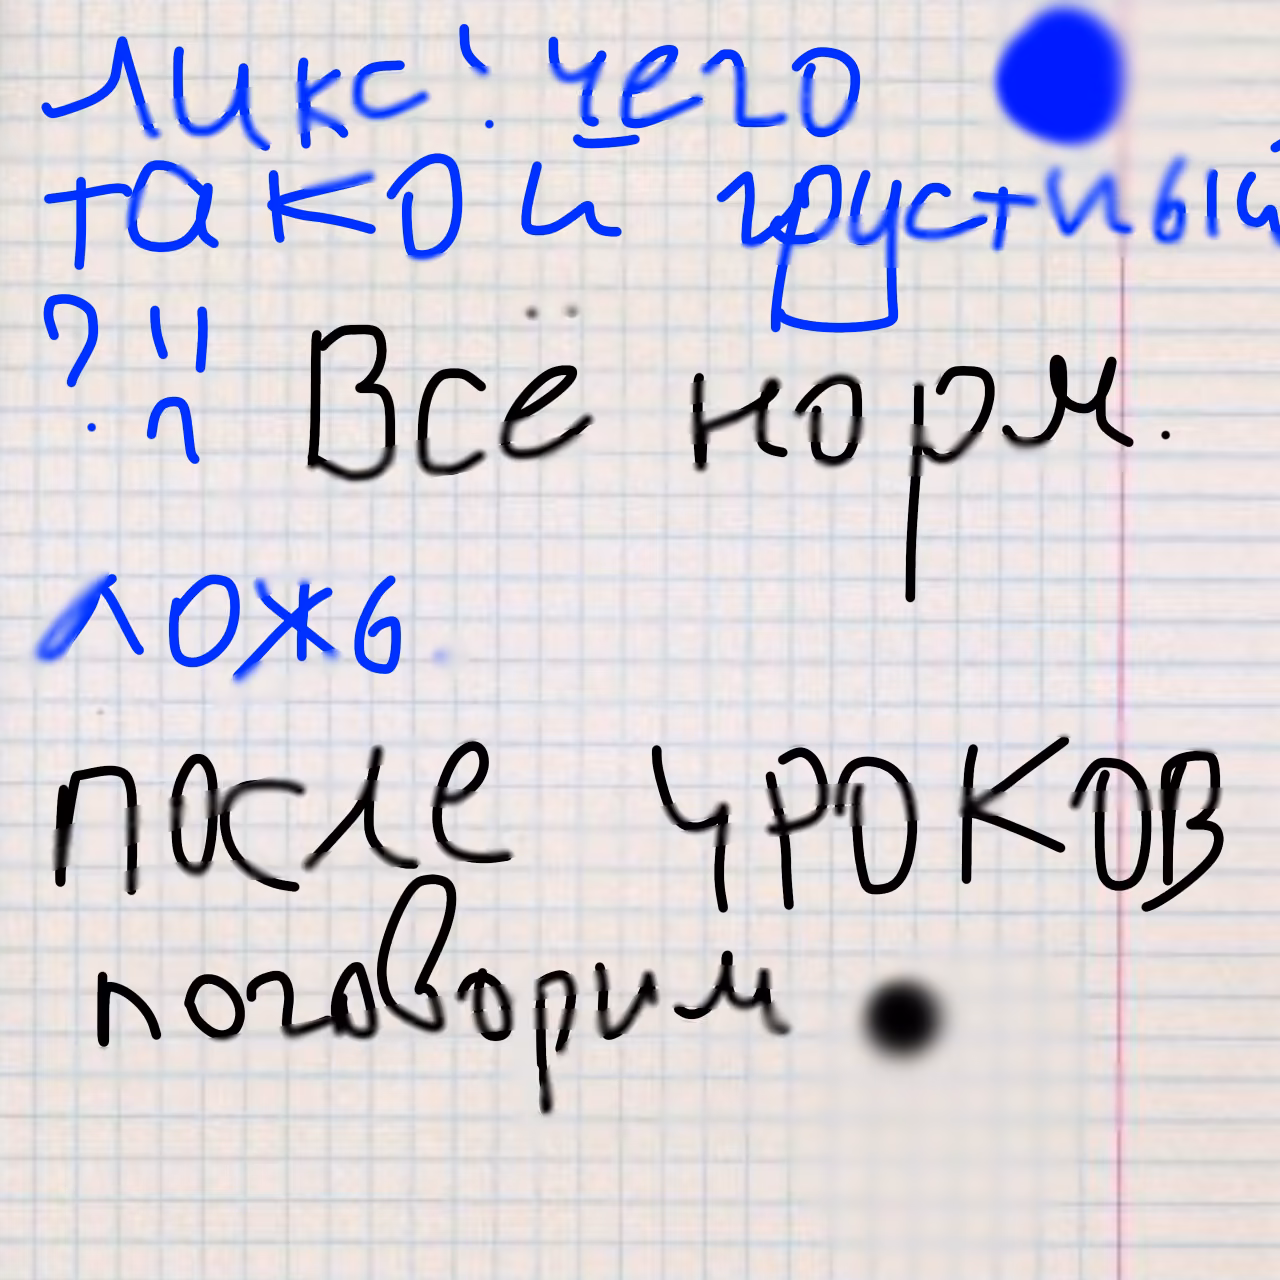 Ликс! чего
такой грустный
?!!
Всё норм.
Ложь.
После уроков
поговорим